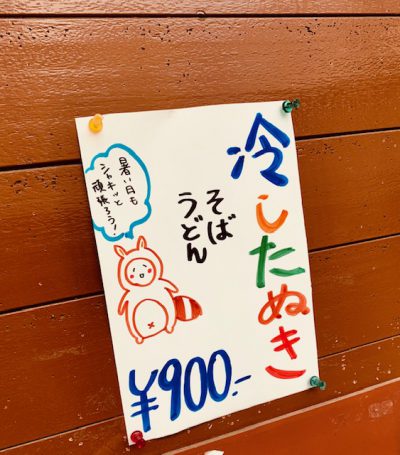 冷したぬき
そば
うどん
暑い日も
シャキッと
頑張ろう!
¥900.-